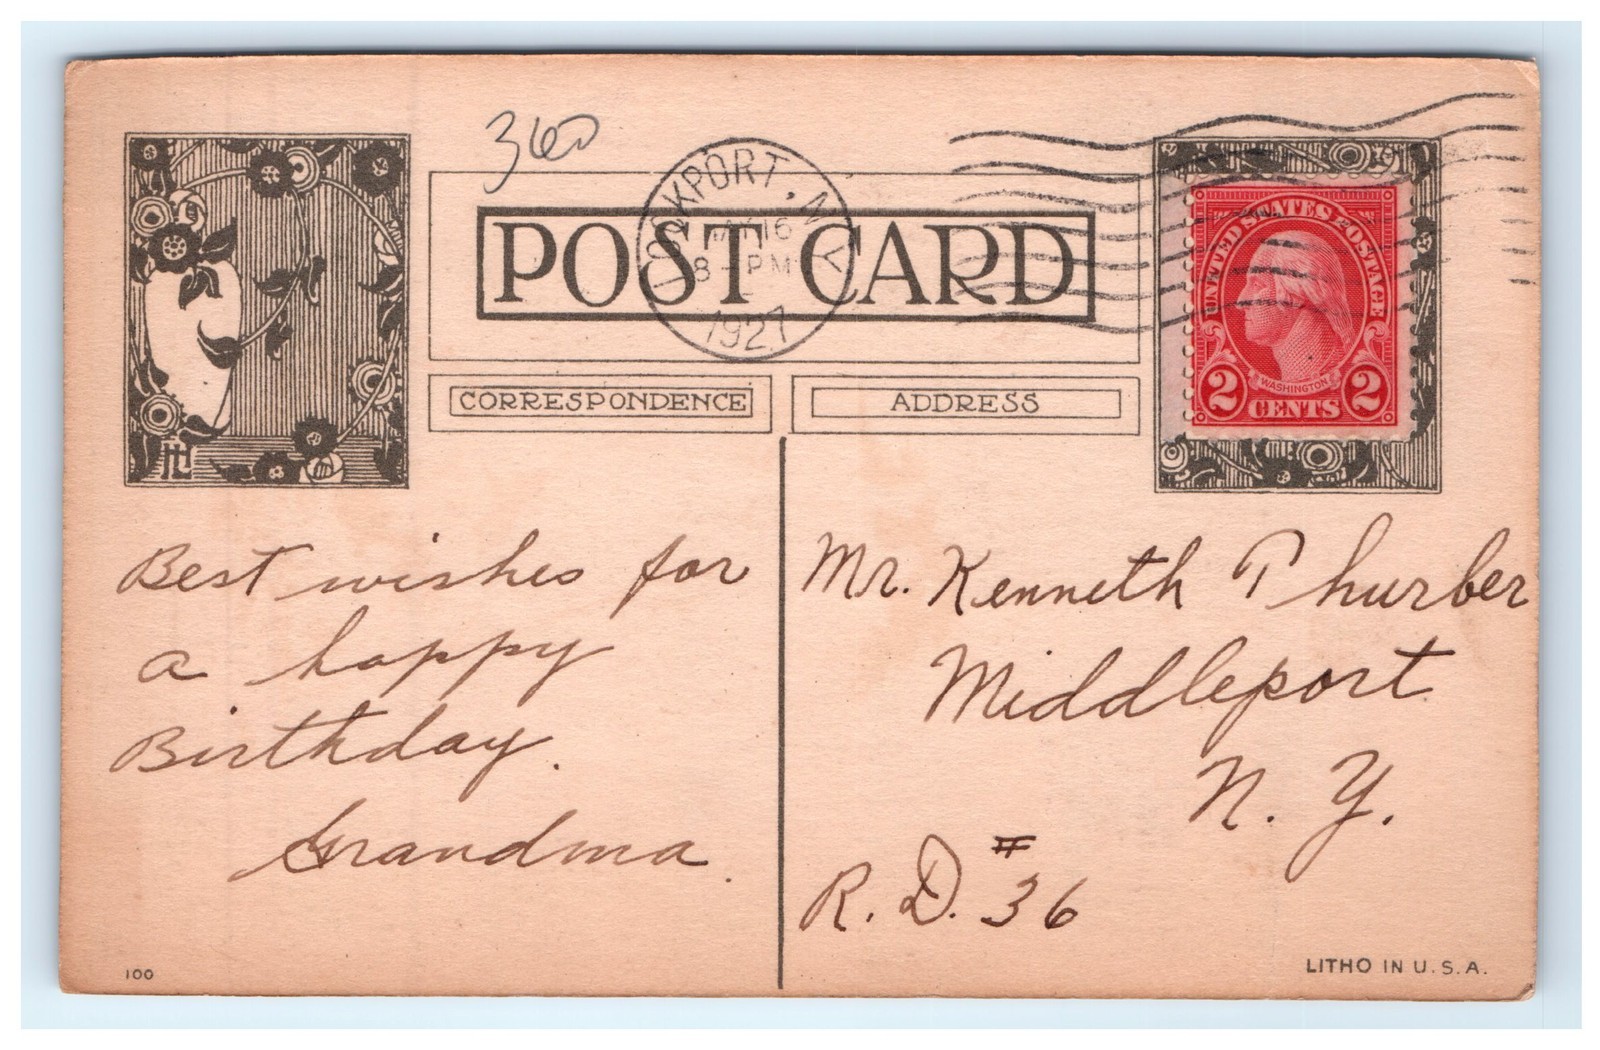 360
LOCKPORT, N.Y.
MAY 16
8 - PM
1927
POST CARD
UNITED STATES POSTAGE
WASHINGTON
2 CENTS 2
CORRESPONDENCE
ADDRESS
Best wishes for
a happy
Birthday.
Grandma.
Mr. Kenneth Thurber
Middleport
N. Y.
R. D. # 36
100
LITHO IN U.S.A.